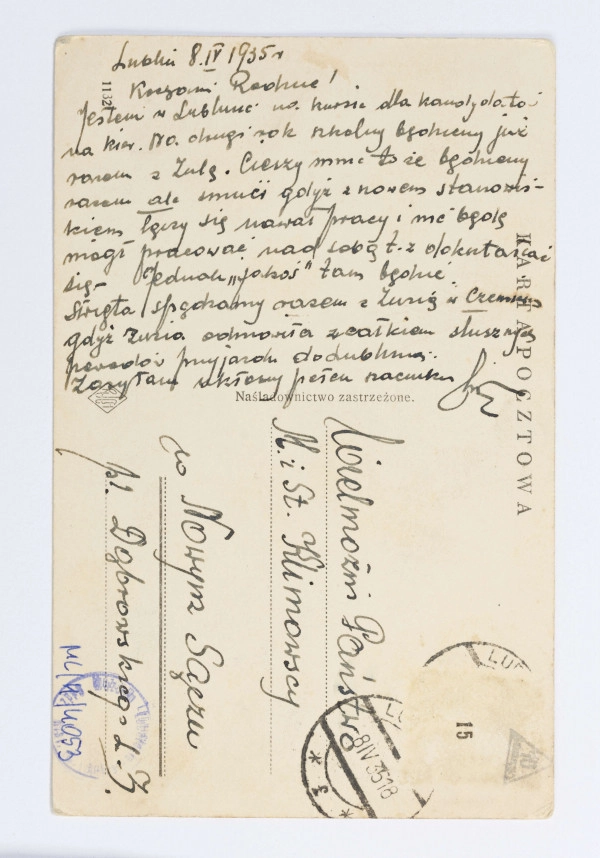 Lublin 8.IV 1935 r
Kochani Rodzice!
Jestem w Lublinie na kursie dla kandydatów
na kier. Na drugi rok szkolny będziemy już
razem z Zulą. Cieszy mnie to że będziemy
razem ale smuci gdyż z nowem stanowis-
kiem łączy się nawał pracy i nie będę
mógł pracować nad sobą t.z dokształcać
się - Jednak "jakoś" tam będzie.
Święta spędzamy razem z Zunią w
gdyż Zunia odmówiła z całkiem słusznych
powodów przyjazdu do Lublina.
Zasyłam ukłony pełen szacunku
1132
KARTA POCZTOWA
Naśladownictwo zastrzeżone.
Wielmożni Państwo
M. i St. Klimowscy
w Nowym Sączu
pl. Dąbrowskiego L. 3.
LU
8 IV 35 18
* 3 *
15